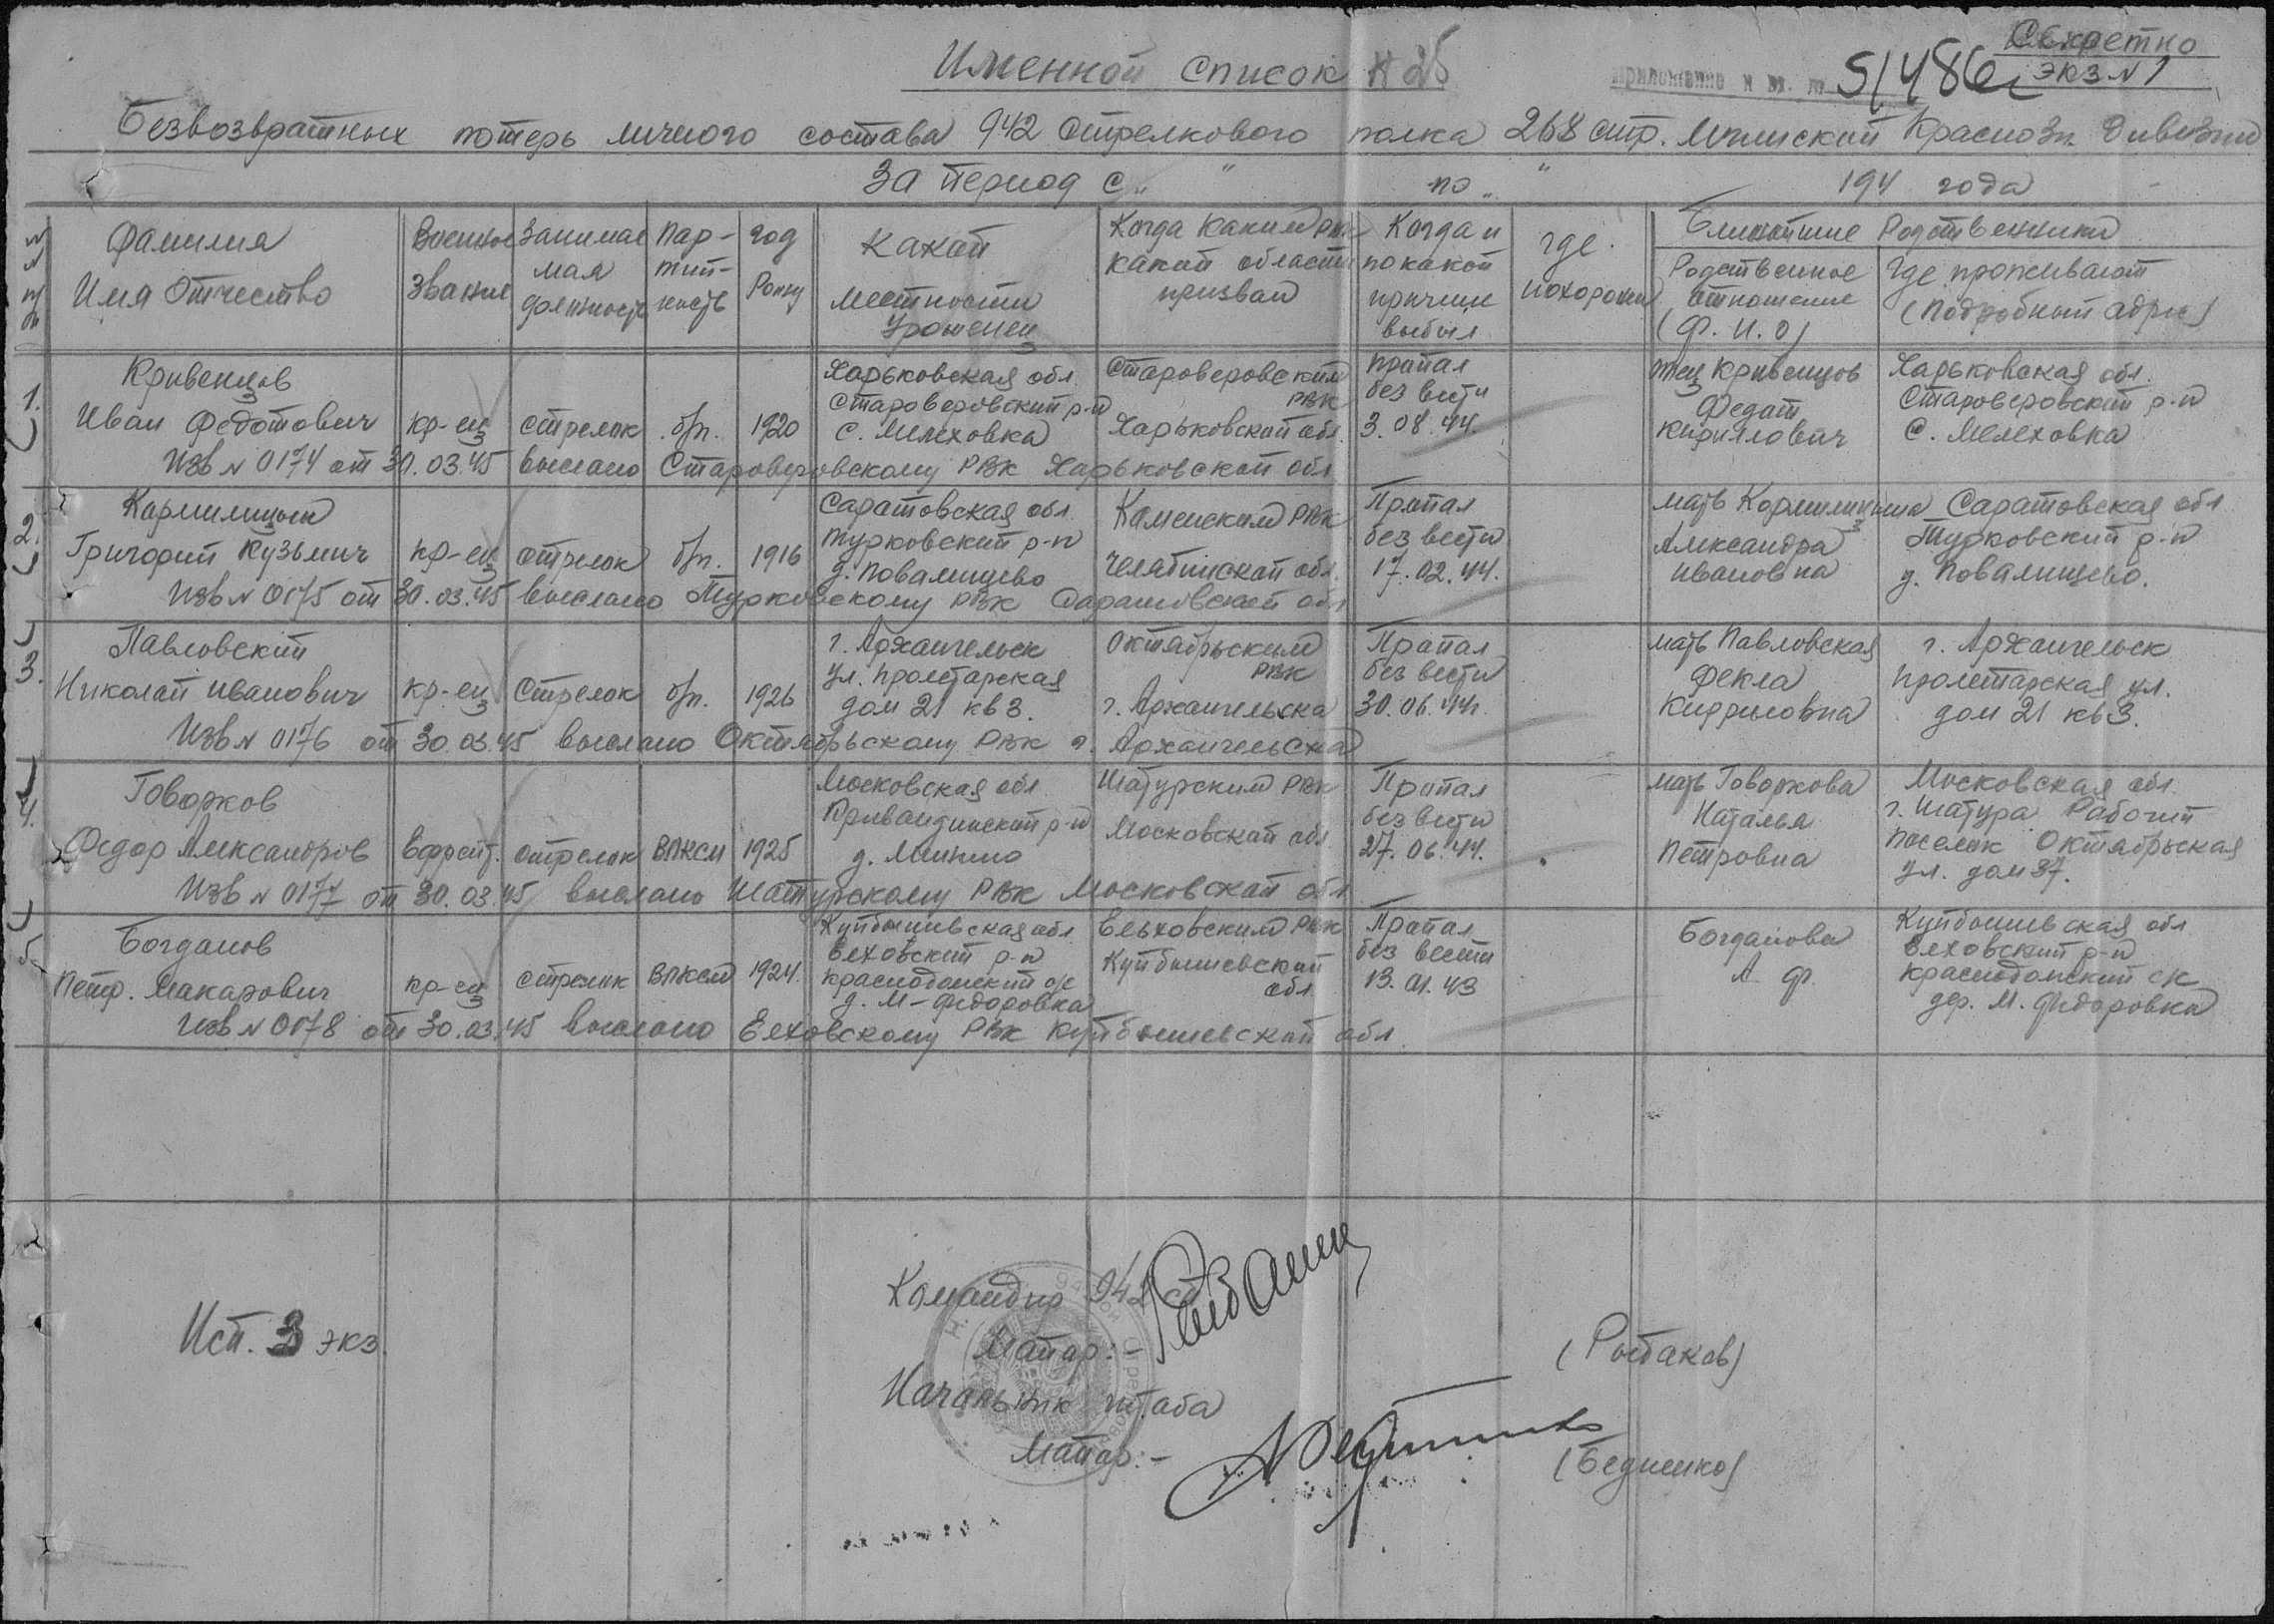 Секретно
экз № 1
Именной список № 25
приложение к вх. № 51486с
Безвозвратных потерь личного состава 942 стрелкового полка 268 стр. Мгинской Краснозн. дивизии
За период с " " по " " 194 года
№№ п/п
Фамилия Имя Отчество
Военное звание
Занимае мая должность
Пар- тий- ность
год Рожд
Какой местности уроженец
Когда каким РВК какой области призван
Когда и по какой причине выбыл
где похоронен
Ближайшие Родственники
Родственное отношение (Ф. И. О)
Где проживают (Подробный адрес)
1. Кривенцов Иван Федотович
кр-ец
стрелок
б/п.
1920
Харьковская обл. Староверовский р-н с. Мелеховка
Староверовским РВК Харьковской обл.
пропал без вести 3.08.44.
отец Кривенцов Федот Кириллович
Харьковская обл. Староверовский р-н с. Мелеховка
Изв № 0174 от 30.03.45 выслано Староверовскому РВК Харьковской обл
2. Кармилицын Григорий Кузьмич
кр-ец
стрелок
б/п.
1916
Саратовская обл. Турковский р-н д. Повалищево
Каменским РВК Челябинской обл.
Пропал без вести 17.02.44.
мать Кормилицына Александра Ивановна
Саратовская обл Турковский р-н д. Повалищево.
Изв № 0175 от 30.03.45 выслано Турковскому РВК Саратовской обл
3. Павловский Николай Иванович
кр-ец
Стрелок
б/п.
1926
г. Архангельск ул. Пролетарская дом 21 кв 3.
Октябрьским РВК г. Архангельска
Пропал без вести 30.06.44.
мать Павловская Фекла Кирриловна
г. Архангельск Пролетарская ул. дом 21 кв 3.
Изв № 0176 от 30.03.45 выслано Октябрьскому РВК г. Архангельска
4. Говорков Федор Александров
Ефрейт.
стрелок
ВЛКСМ
1925
Московская обл. Кривандинский р-н д. Минино
Шатурским РВК Московской обл.
Пропал без вести 27.06.44.
мать Говоркова Наталья Петровна
Московская обл. г. Шатура Рабочий поселок Октябрьская ул. дом 37.
Изв № 0177 от 30.03.45 выслано Шатурскому РВК Московской обл
5. Богданов Петр. Макарович
кр-ец
стрелок
ВЛКСМ
1924.
Куйбышевская обл. Елховский р-н Краснодомский с/с д. М-Федоровка
Ельховским РВК Куйбышевской обл
Пропал без вести 13.01.43
Богданова А. Ф.
Куйбышевская обл Елховский р-н Краснодомский с/с дер. М. Федоровка
Изв № 0178 от 30.03.45 выслано Елховскому РВК Куйбышевской обл.
Исп. 3 экз.
Командир 942 сп
Майор:-
(Рыбаков)
Начальник штаба
Майор:-
(Бедненко)